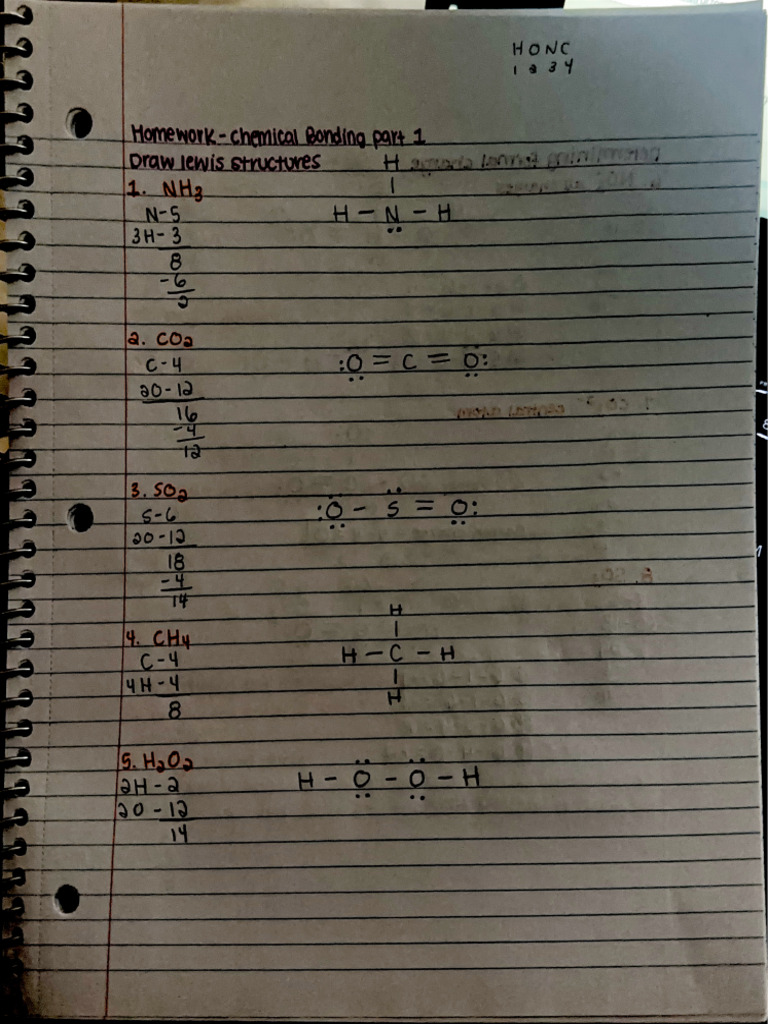 HONC
1 2 3 4
Homework - Chemical Bonding part 1
Draw lewis structures
1. NH₃
N-5
3H-3
8
-6
2
H
|
H - N - H
··
2. CO₂
C-4
2O-12
16
-4
12
:O = C = O:
·· ··
3. SO₂
S-6
2O-12
18
-4
14
·· ··
:O - S = O:
·· ··
4. CH₄
C-4
4H-4
8
H
|
H - C - H
|
H
5. H₂O₂
2H-2
2O-12
14
·· ··
H - O - O - H
·· ··